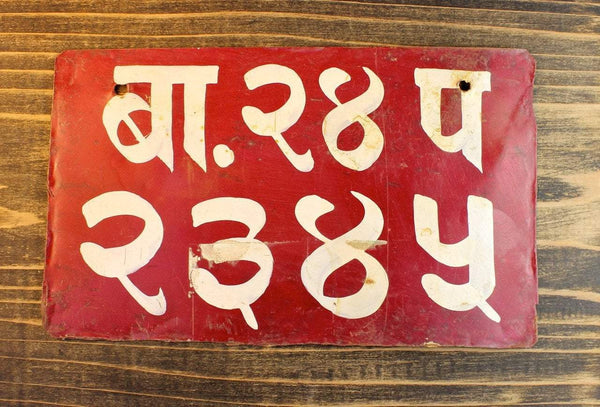 बा.२४ प
२३४५